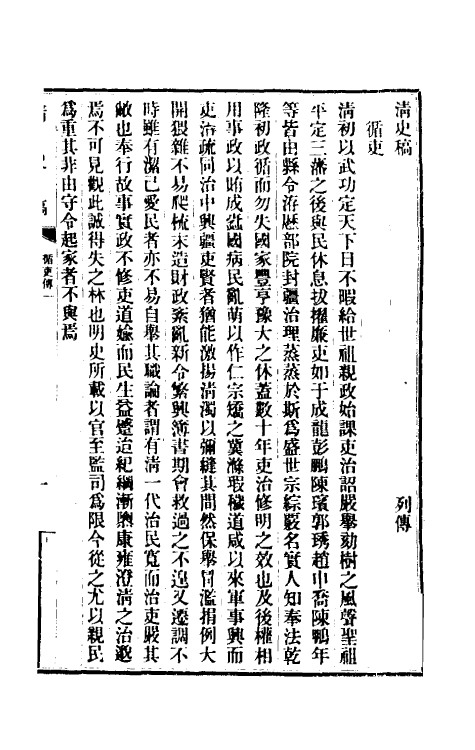 清史稿 列傳
循吏
清初以武功定天下日不暇給世祖親政始課吏治詔嚴舉劾樹之風聲聖祖
平定三藩之後與民休息拔擢廉吏如于成龍彭鵬陳璸郭琇趙申喬陳鵬年
等皆由縣令洊歷部院封疆治理蒸蒸於斯爲盛世宗綜覈名實人知奉法乾
隆初政循而勿失國家豐亨豫大之休蓋數十年吏治修明之效也及後權相
用事政以賄成蠹國病民亂萌以作仁宗矯之冀滌瑕穢道咸以來軍事興而
吏治疏同治中興疆吏賢者猶能激揚清濁以彌縫其間然保舉冒濫捐例大
開猥雜不易爬梳末造財政紊亂新令繁興簿書期會救過之不遑又遷調不
時雖有潔己愛民者亦不易自舉其職論者謂有清一代治民寬而治吏嚴其
敝也奉行故事實政不修吏道媮而民生益蹙迨紀綱漸隳康雍澄清之治邈
焉不可見觀此誠得失之林也明史所載以官至監司爲限今從之尤以親民
爲重其非由守令起家者不與焉
循吏傳一
一